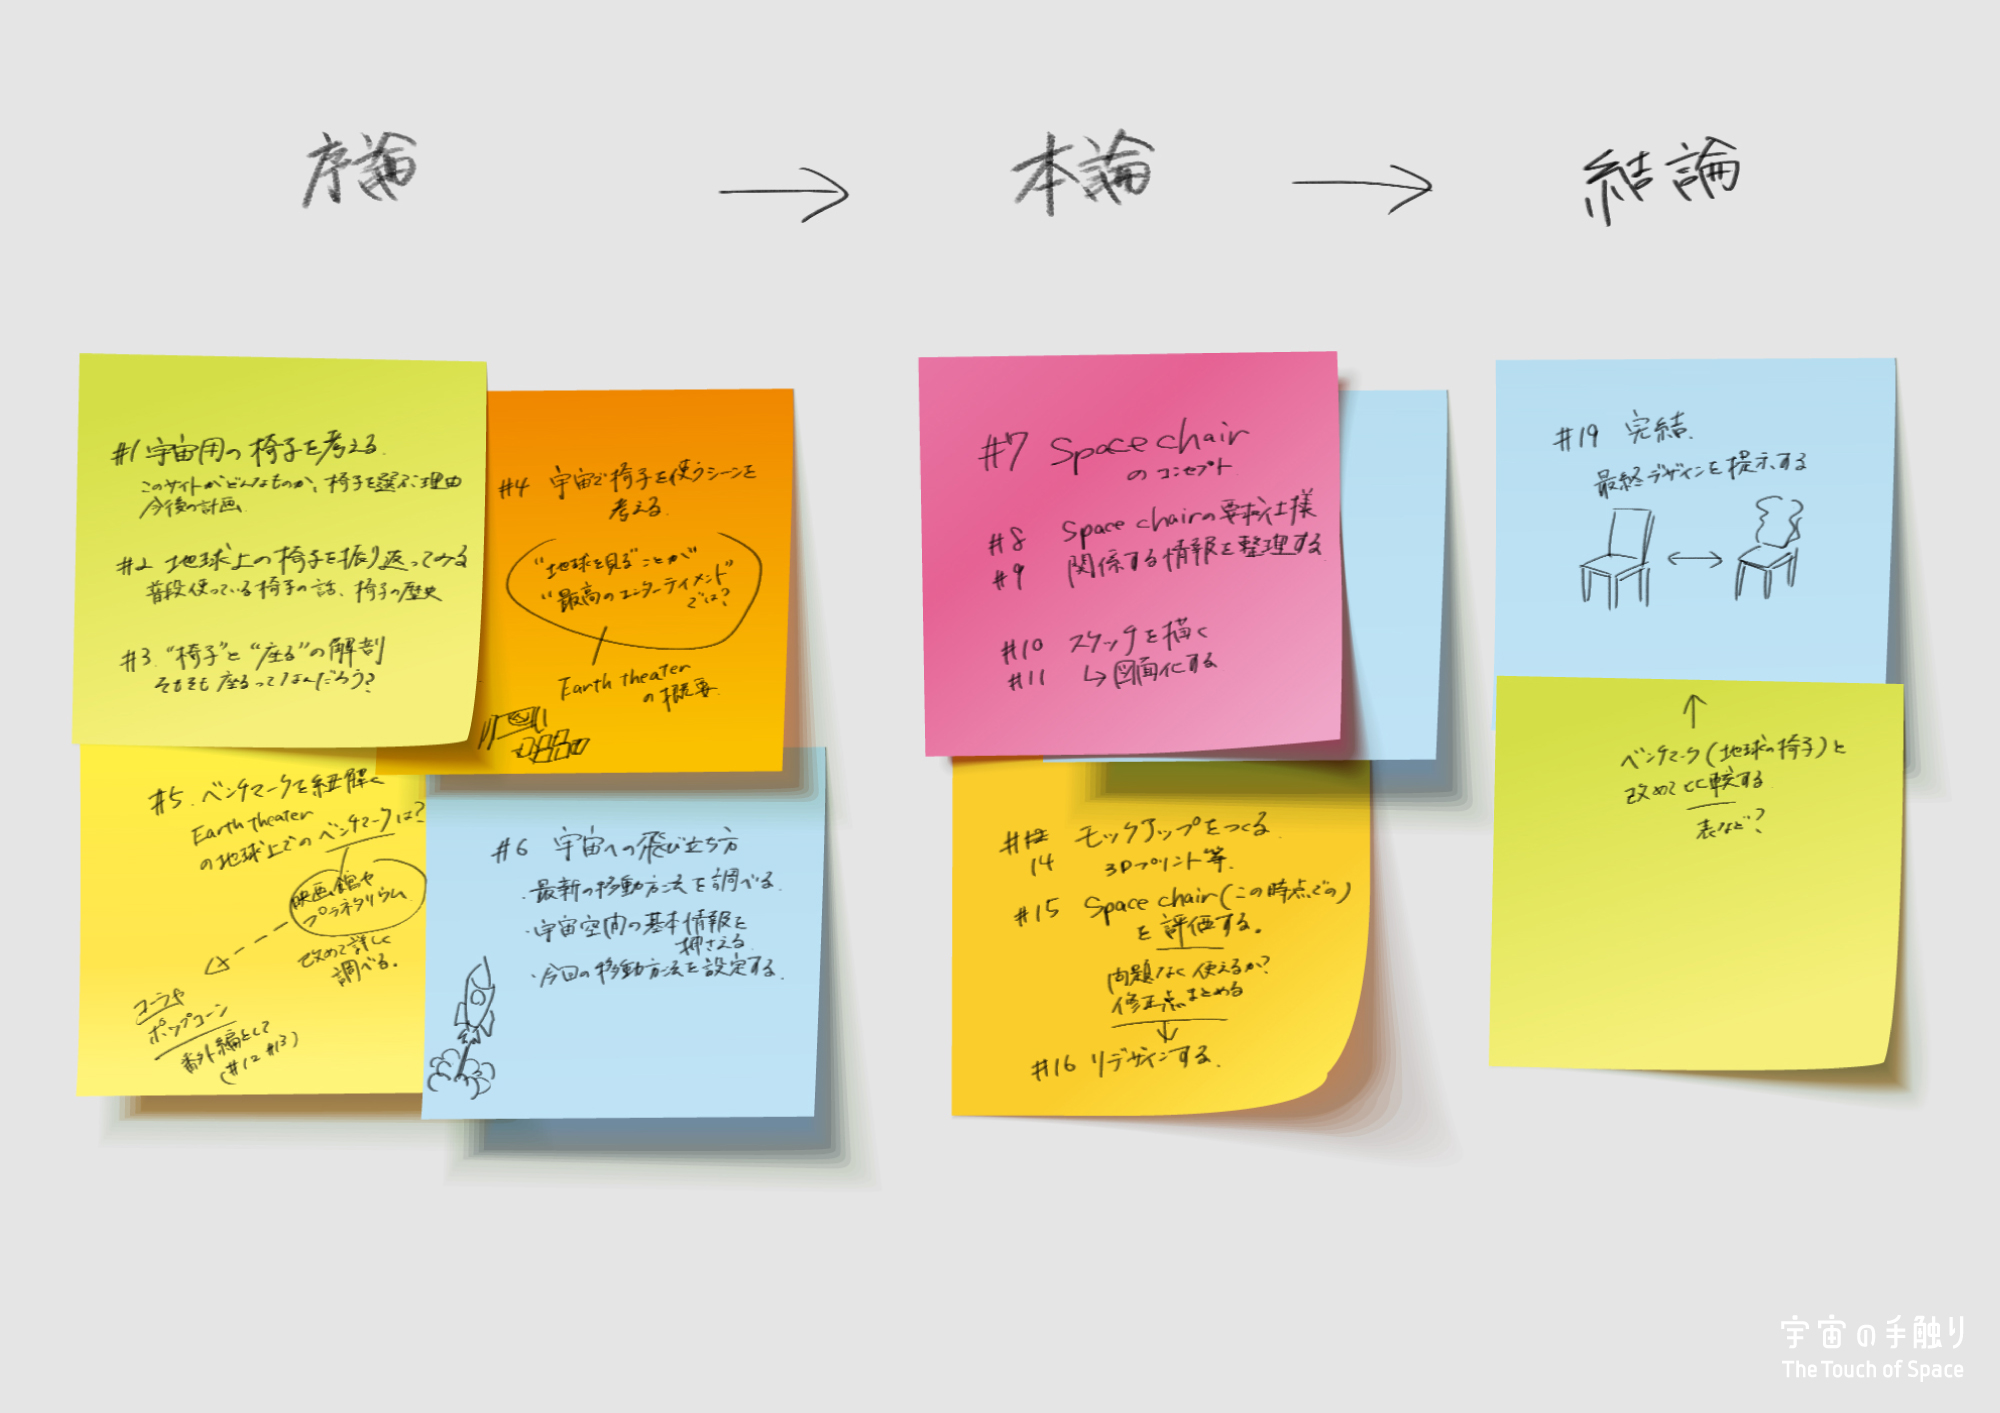 序論
本論
結論
#1 宇宙用の椅子を考える.
このサイトがどんなものか、椅子を選ぶ理由
今後の計画
#2 地球上の椅子を振り返ってみる
普段使っている椅子の話、椅子の歴史
#3. "椅子"と"座る"の解剖
そもそも座るってなんだろう?
#4 宇宙で椅子を使うシーンを
考える.
"地球を見る"ことが"
"最高のエンターテイメント"
では?
Earth theater
の概要
#5. ベンチマークを紐解く
Earth theater
の地球上でのベンチマークは?
映画館や
プラネタリウム
改めて詳しく
調べる。
コーラや
ポップコーン
番外編として
(#12 #13)
#6 宇宙への飛び立ち方
・最新の移動方法を調べる.
・宇宙空間の基本情報を
押さえる
・今回の移動方法を設定する.
#7 Space chair
のコンセプト
#8 Space chairの要求仕様
#9 関係する情報を整理する
#10 スケッチを描く
#11 ↳図面化する
#
14 モックアップをつくる.
3Dプリント等.
#15 Space chair(この時点での)
を評価する。
問題なく使えるか?
修正点まとめる
#16 リデザインする.
#19 完結.
最終デザインを提示する
ベンチマーク(地球の椅子)と
改めて比較する
表など?
宇宙の手触り
The Touch of Space